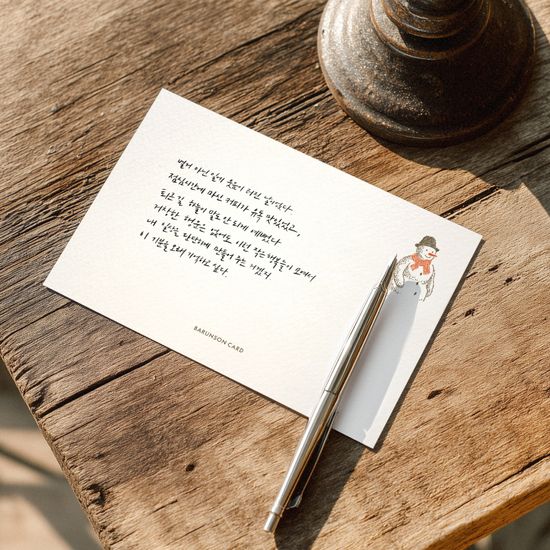 별거 아닌 일에 웃음이 터진 날이었다.
점심시간에 마신 커피가 유독 맛있었고,
퇴근길 하늘이 말도 안 되게 예뻤다.
거창한 행운은 없어도 이런 작은 행복들이 모여서
내 일상을 단단하게 만들어 주는 거겠지
이 기분을 오래 기억하고 싶다.
BARUNSON CARD